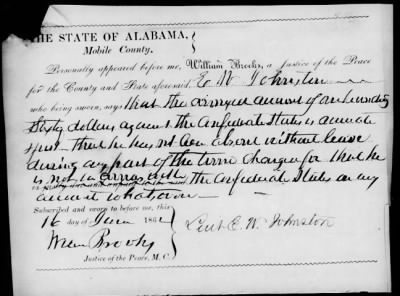 THE STATE OF ALABAMA,
Mobile County.
Personally appeared before me, William Brooks, a Justice of the Peace
for the County and State aforesaid, E W Johnston
who being sworn, says that the annexed account of one hundred
Sixty dollars against the Confederate States is accurate
just that he has not been absent without leave
during any part of the time charged for that he
is not in arrears with the Confederate States on any
account whatever
Subscribed and sworn to before me, this
16 day of June 1862
Wm Brooks
Justice of the Peace, M. C.
Lieut E. W. Johnston